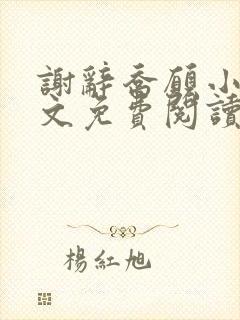 謝辭喬願小
文免費閱讀
楊紅旭